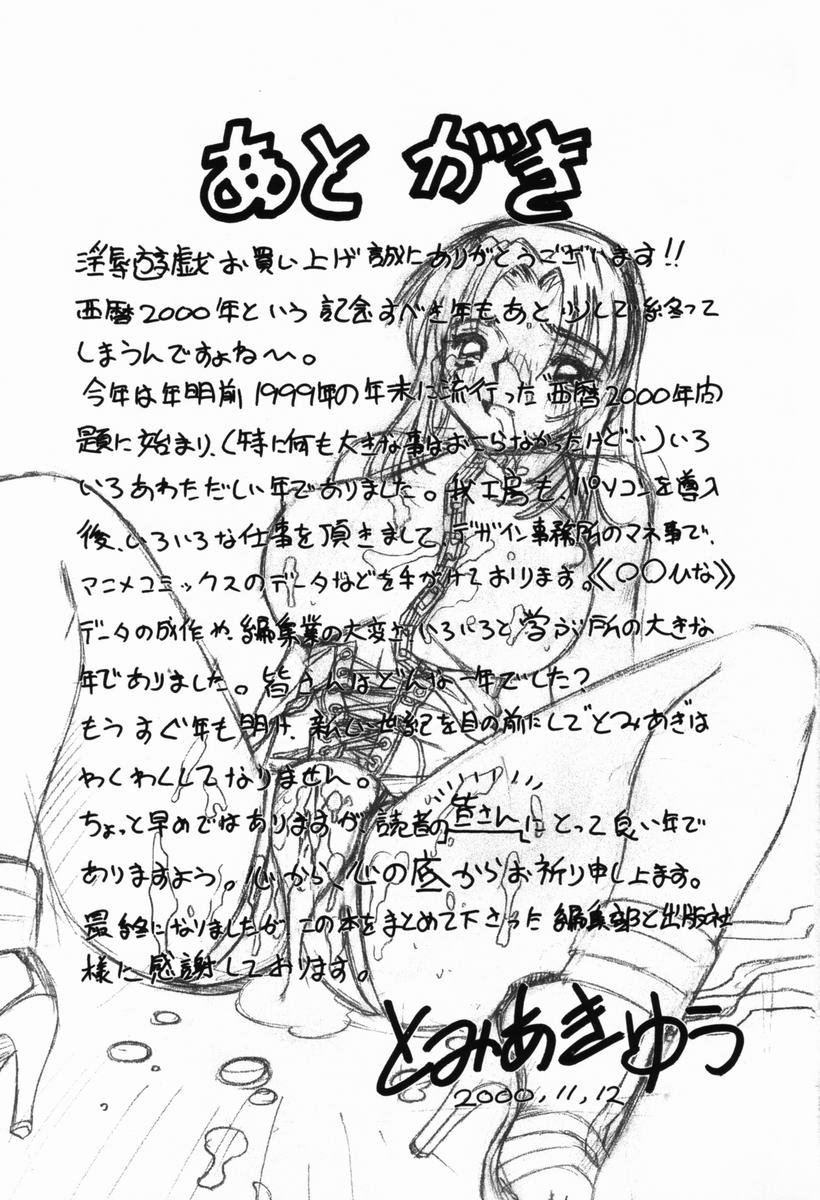 あとがき
淫辱遊戯お買い上げ誠にありがとうございます!!
西暦2000年という記念すべき年も、あと少しで終って
しまうんですよね〜。
今年は年明前1999年の年末に流行った西暦2000年問
題に始まり、(特に何も大きな事はおこらなかったけど…)いろ
いろあわただしい年でありました。我工房も、パソコンを導入
後、いろいろな仕事を頂きまして、デザイン事務所のマネ事で、
マニメコミックスのデータなどを手がけております。《〇〇ひな》
データの成作や、編集業の大変さいろいろと学ぶ所の大きな
年でありました。皆さんはどんな一年でした?
もうすぐ年も明け、新しい世紀を目の前にしてとみあきは
わくわくしてなりません。
ちょっと早めではありますが読者の皆さんにとって良い年で
ありますよう。心から、心の底からお祈り申し上ます。
最終になりましたが この本をまとめて下さった 編集部と出版社
様に感謝しております。
とみあきゆう
2000,11,12